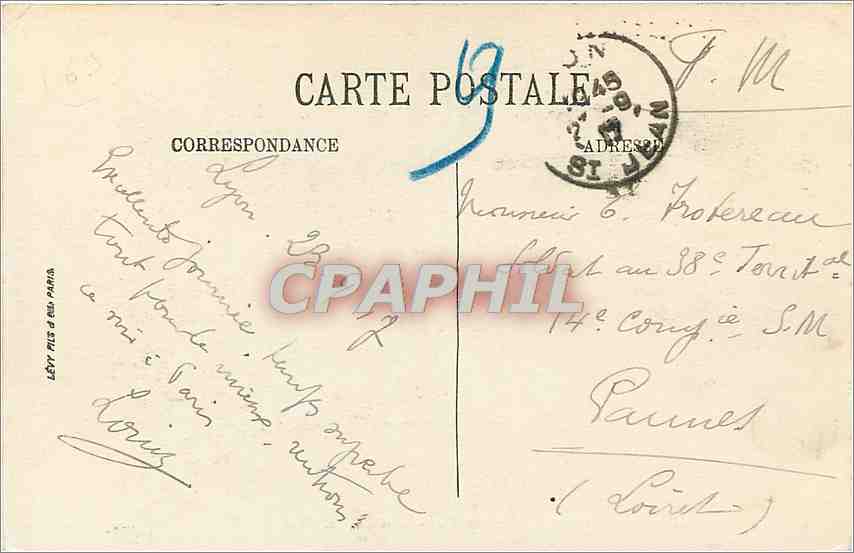 F. M
CARTE POSTALE
CORRESPONDANCE
ADRESSE
ST JEAN
19
Lyon
23 17
Excellente journée, temps superbe
tout
ce soir à Paris
Louis
Monsieur E. Trotereau
Soldat au 38e Territal
14e Compie S.M
Pannes
(Loiret)
LÉVY FILS & Cie, PARIS
CPAPHIL